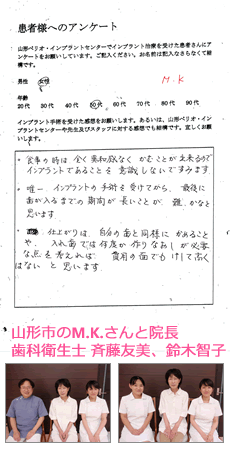 患者様へのアンケート
山形ペリオ・インプラントセンターでインプラント治療を受けた患者さんにア
ンケートをお願いしています。ご記入ください。お名前は記入なさらなくて結
構です。
男性 女性 M.K
年齢
20代 30代 40代 50代 60代 70代 80代 90代
インプラント手術を受けた感想をお願いします。あるいは、山形ペリオ・イン
プラントセンターや先生及びスタッフに対する感想でも結構です。宜しくお願
いします。
・食事の時は全く違和感なくかむことが出来るので
インプラントであることを意識しないですみます
・唯一、インプラントの手術を受けてから、最後に
歯が入るまでの期間が長いことが、難かなと
思います。
・仕上がりは、自分の歯と同様にかめること
や、入れ歯では何度か作りなおしが必要
な点を考えれば、費用の面でもけして高く
はないと思います。
山形市のM.K.さんと院長
歯科衛生士 斉藤友美、鈴木智子